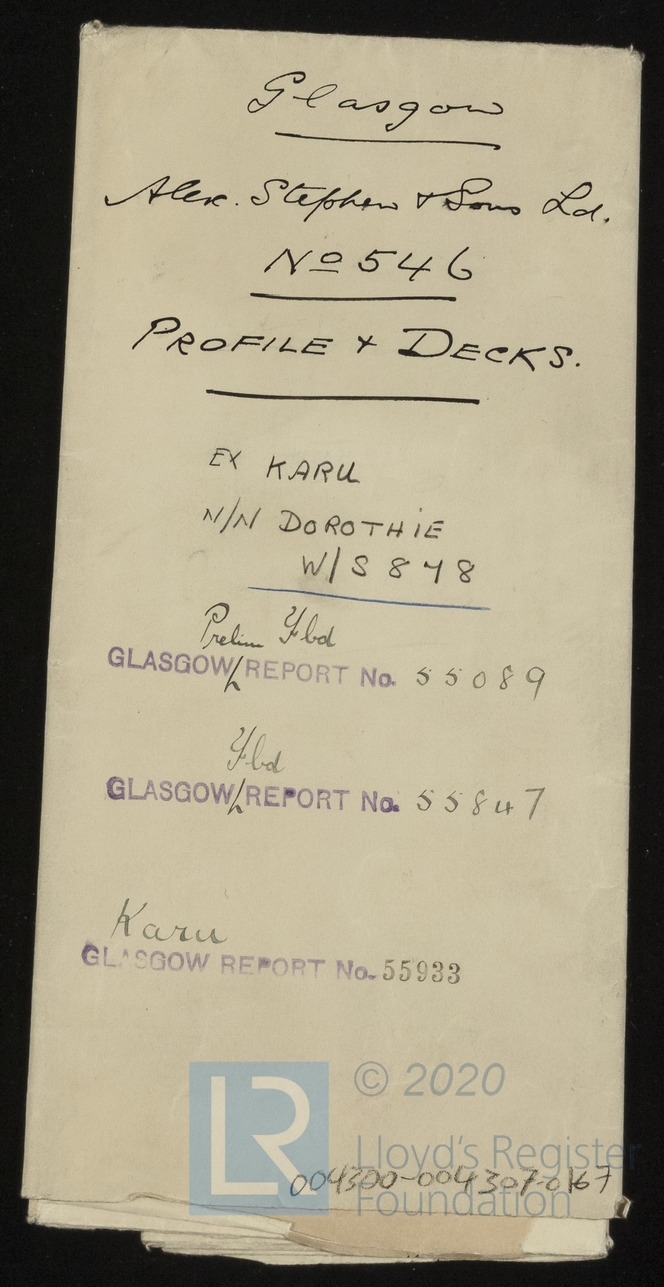 Glasgow
Alex. Stephen & Sons Ld.
No 546
PROFILE & DECKS.
EX KARU
N/N DOROTHIE
W/S 848
Prelim Ybd
GLASGOW REPORT No. 55089
Ybd
GLASGOW REPORT No. 55847
Karu
GLASGOW REPORT No. 55933
LR © 2020
Lloyd's Register
004300-004307-0167
Foundation